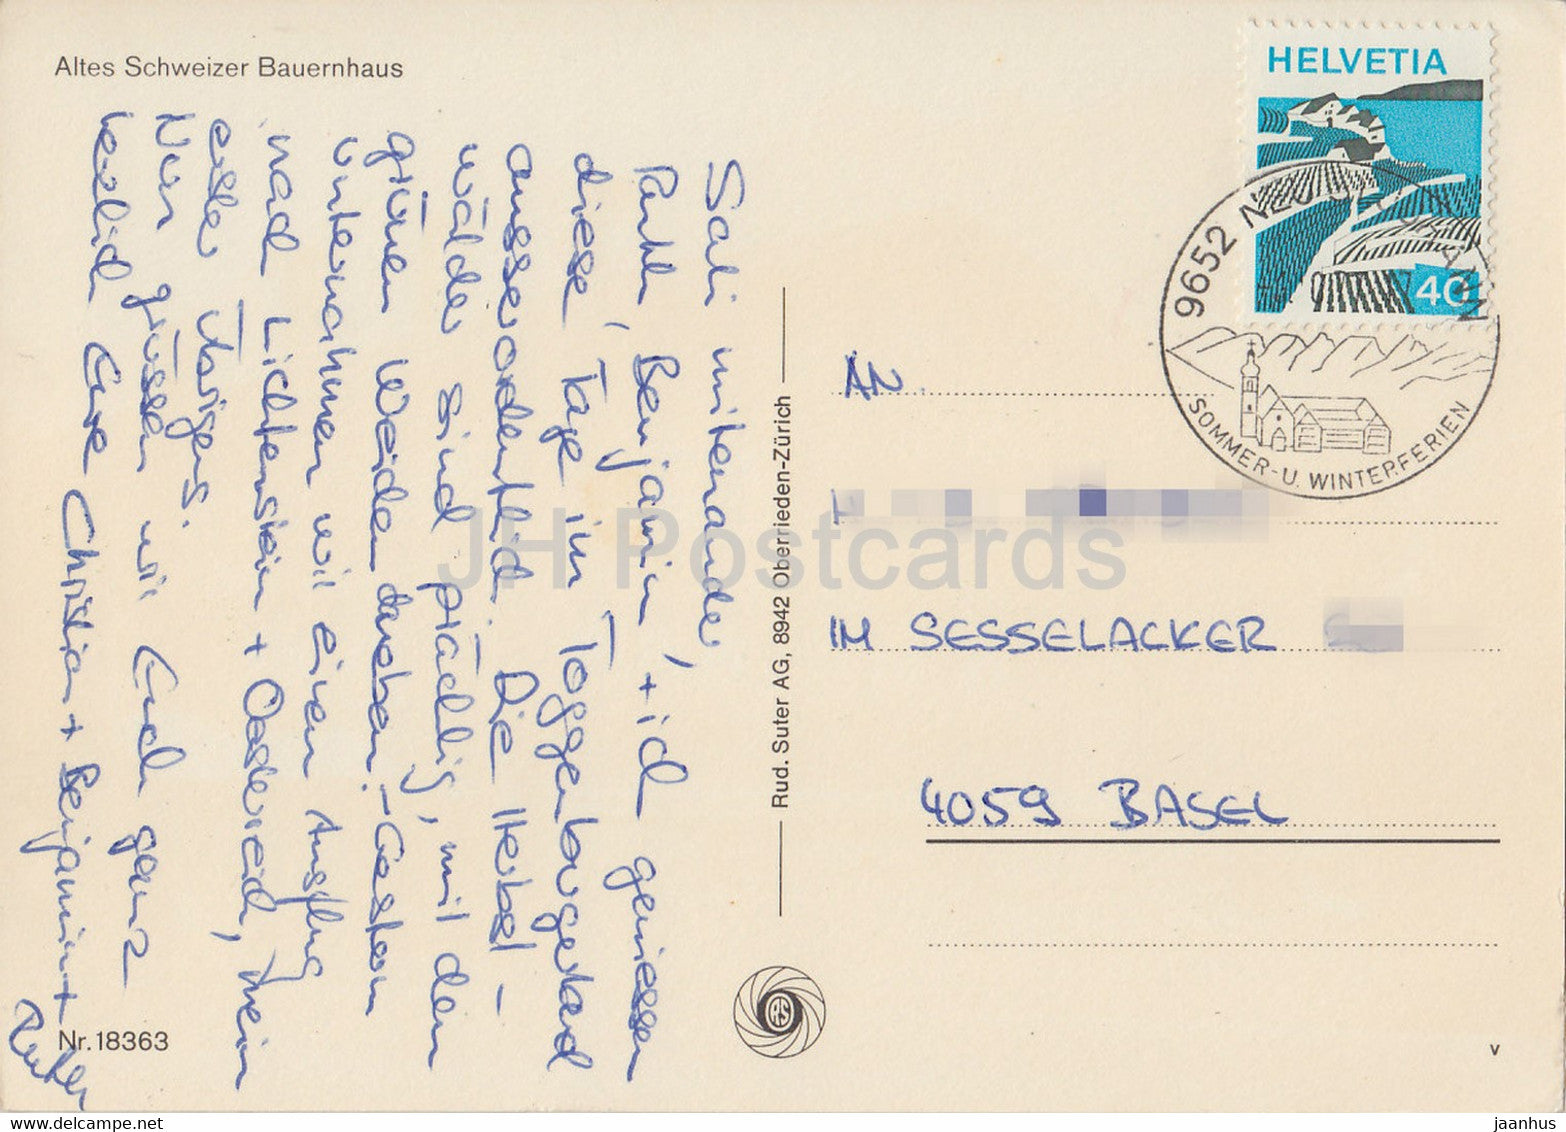 Altes Schweizer Bauernhaus
Sali mitenander,
Ruth, Benjamin, + ich geniessen
diese Tage im Toggenburgerland
ausserordentlich. Die Herbst-
wälder sind prächtig, mit den
grünen Weiden daneben. – Gestern
unternahmen wir einen Ausflug
nach Lichtenstein + Oesterreich, mein
erster übrigens.
Nun grüssen wir Euch ganz
herzlich Eure Christian + Benjamin +
Ruth
Nr. 18363
Rud. Suter AG, 8942 Oberrieden-Zürich
HELVETIA
40
9652 NEU ST. JOHANN
SOMMER- U. WINTERFERIEN
AN
IM SESSELACKER
4059 BASEL
v
JH Postcards
jaanhus © delcampe.net